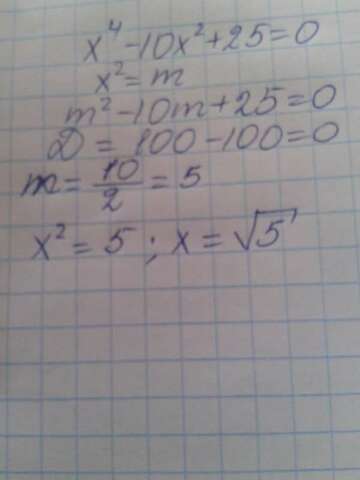 x⁴-10x²+25=0
x²=m
m²-10m+25=0
D=100-100=0
m=10/2=5
x²=5; x=√5